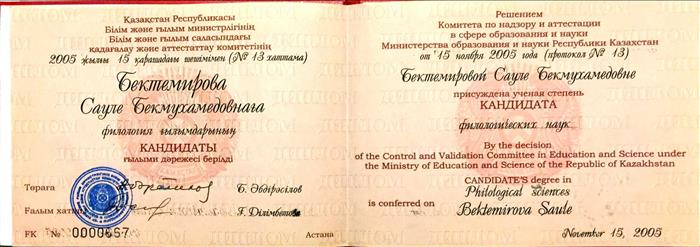 Қазақстан Республикасы
Білім және ғылым министрлігінің
Білім және ғылым саласындағы
қадағалау және аттестаттау комитетінің
2005 жылғы 15 қарашадағы шешімімен (№ 13 хаттама)
Бектемирова
Сауле Бекмухамедовнаға
филология ғылымдарының
КАНДИДАТЫ
ғылыми дәрежесі берілді
Төраға
Б. Әбдірасілов
Ғалым хатшы
FK № 0000657
Астана
Решением
Комитета по надзору и аттестации
в сфере образования и науки
Министерства образования и науки Республики Казахстан
от "15 ноября 2005 года (протокол № 13)
Бектемировой Сауле Бекмухамедовне
присуждена ученая степень
КАНДИДАТА
филологических наук
By the decision
of the Control and Validation Committee in Education and Science under
the Ministry of Education and Science of the Republic of Kazakhstan
CANDIDATE's degree in
Philological sciences
is conferred on Bektemirova Saule
November 15, 2005